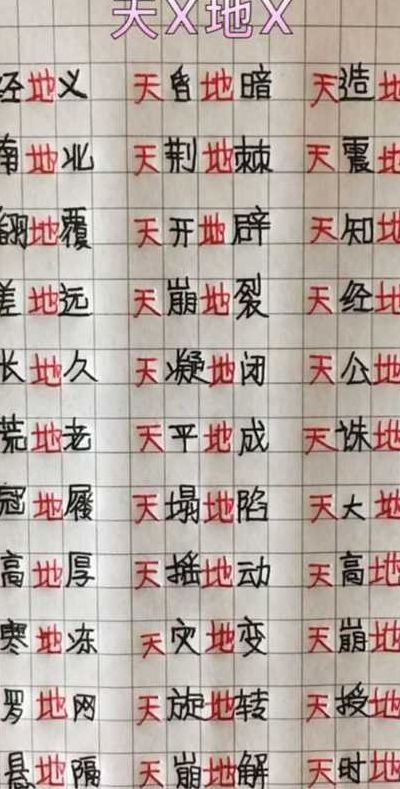 天X地X
经地义 天昏地暗 天造地
南地北 天荆地棘 天震地
翻地覆 天开地辟 天知地
差地远 天崩地裂 天经地
长地久 天凝地闭 天公地
荒地老 天平地成 天诛地
冠地屦 天塌地陷 天大地
高地厚 天摇地动 天高地
寒地冻 天灾地变 天崩地
罗地网 天旋地转 天授地
悬地隔 天崩地解 天时地